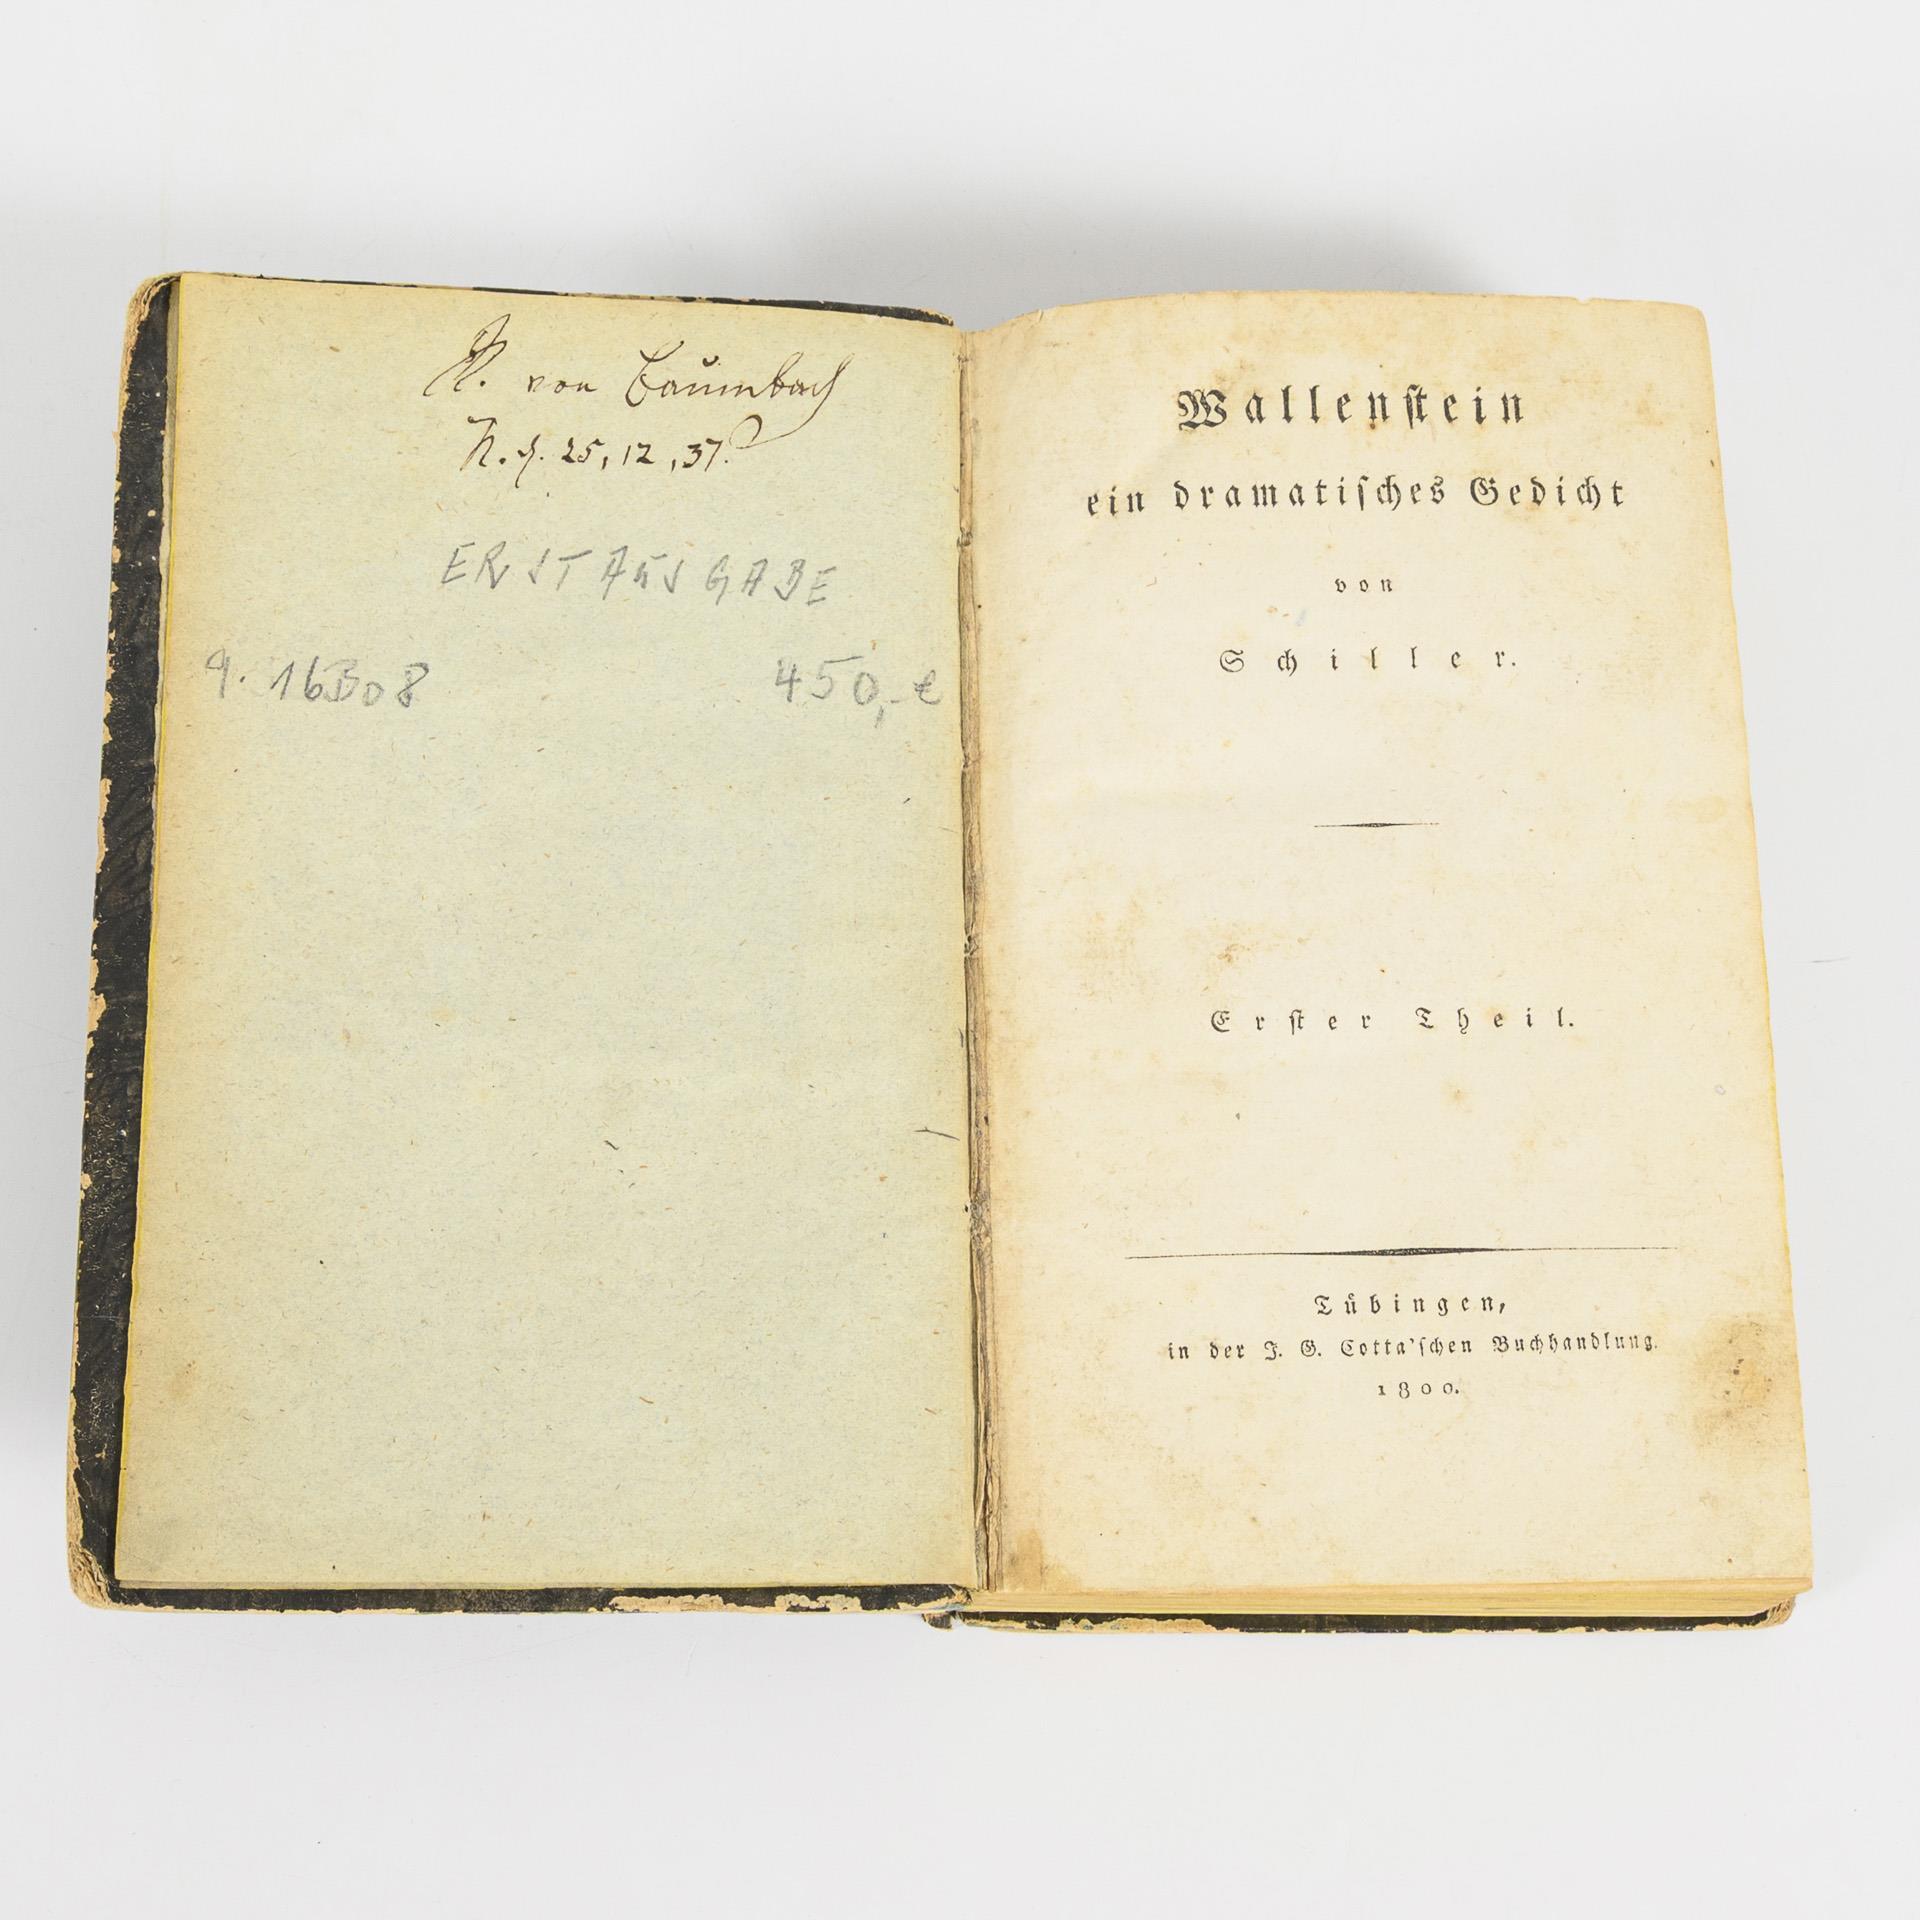 von Baumbach
25, 12, 37.
ERSTAUSGABE
9. 16308
450,- €
Wallenſtein
ein dramatiſches Gedicht
von
Schiller.
Erſter Theil.
Tübingen,
in der J. G. Cotta'ſchen Buchhandlung.
1800.